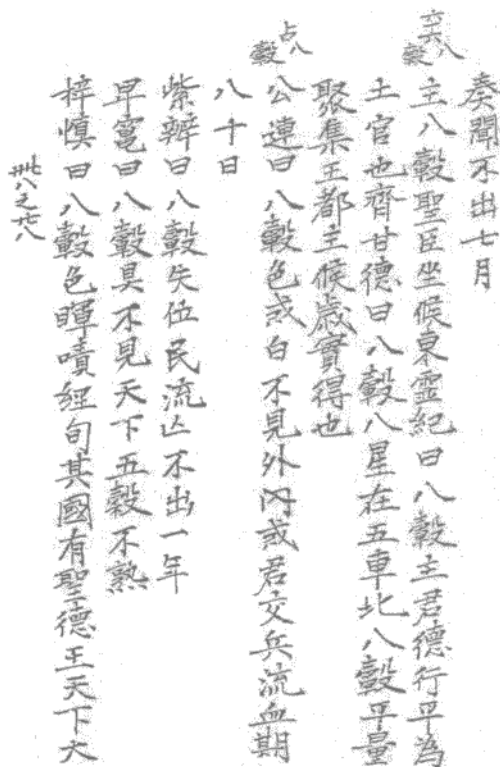 奏聞不出七月
六六八穀
主八穀聖臣坐候東霊紀曰八穀主君徳行平為
土官也齊甘徳曰八穀八星在五車北八穀平量
聚集王都主候歳實得也
占八穀
公連曰八穀色或白不見外内或君交兵流血期
八十日
紫辨曰八穀失位民流亡不出一年
早竃曰八穀具不見天下五穀不熟
梓慎曰八穀色暉嘖経旬其國有聖徳王天下大
卅八之廿八